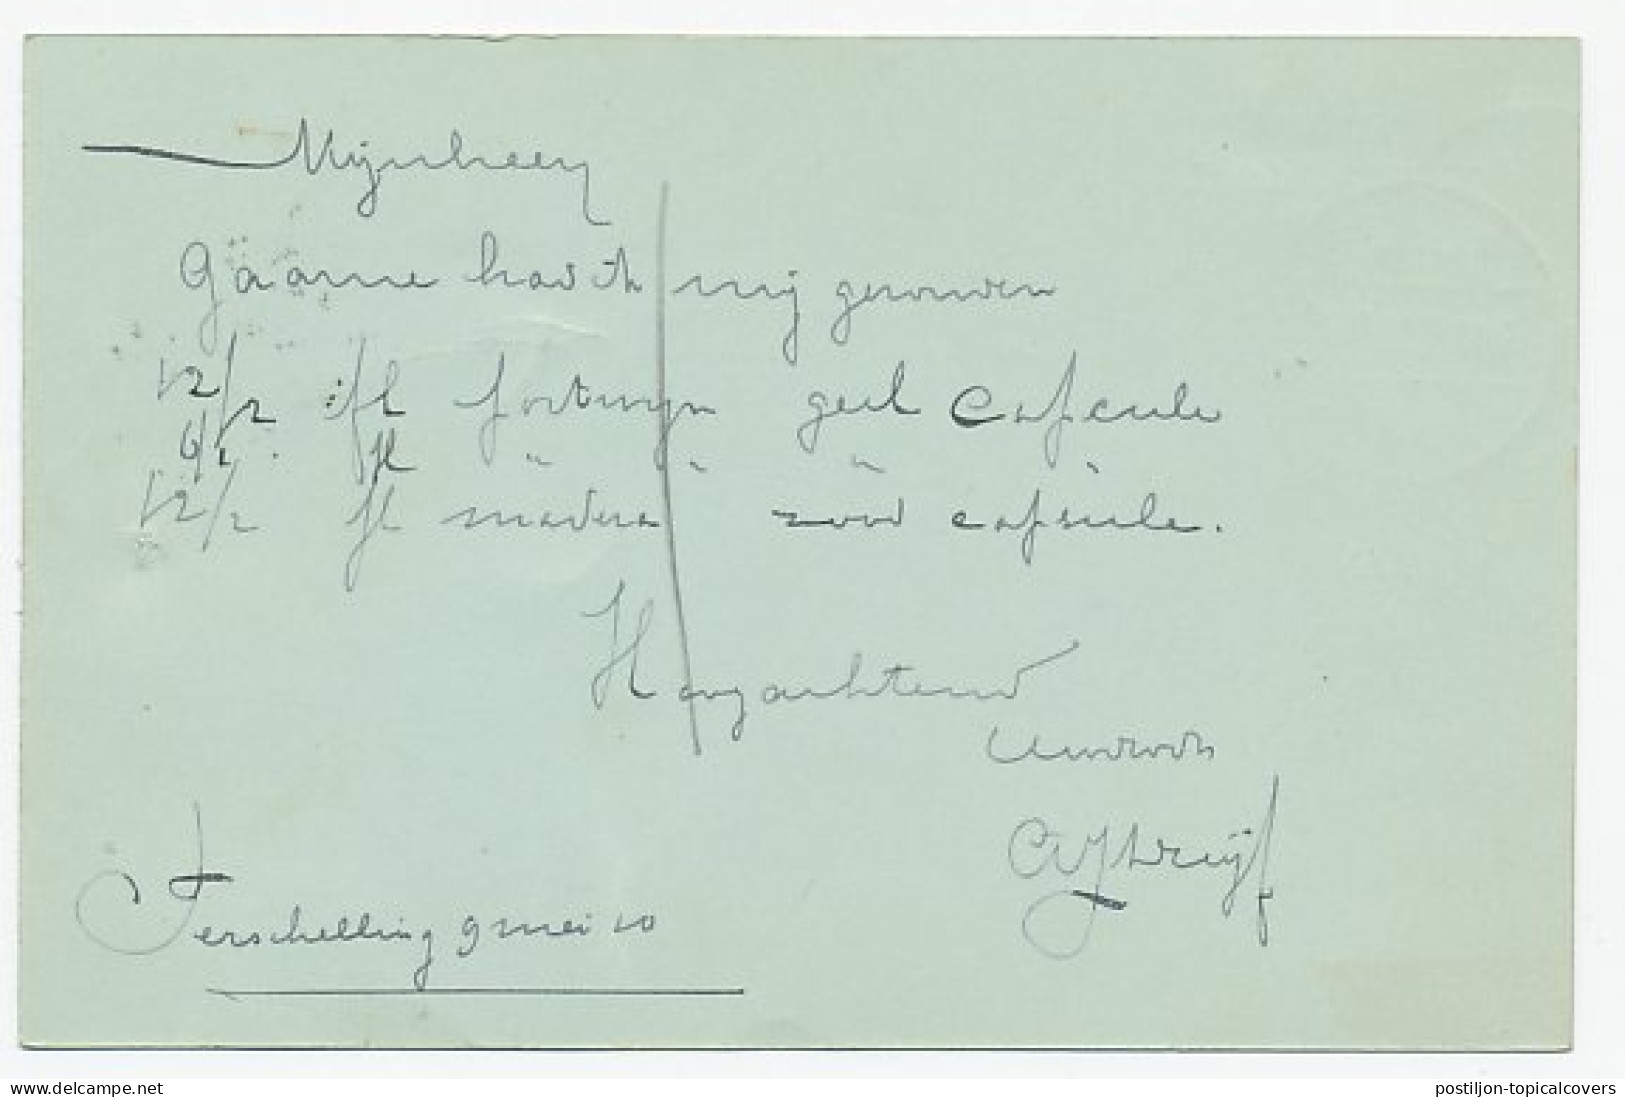 Mijnheer
Gaarne had ik mij gezonden
12/2 fl portwijn geel Capsule
6/1 fl " " " "
12/2 fl madera rood capsule.
Hoogachtend
UwEd
Terschelling 9 mei 10
www.delcampe.net
postiljon-topicalcovers